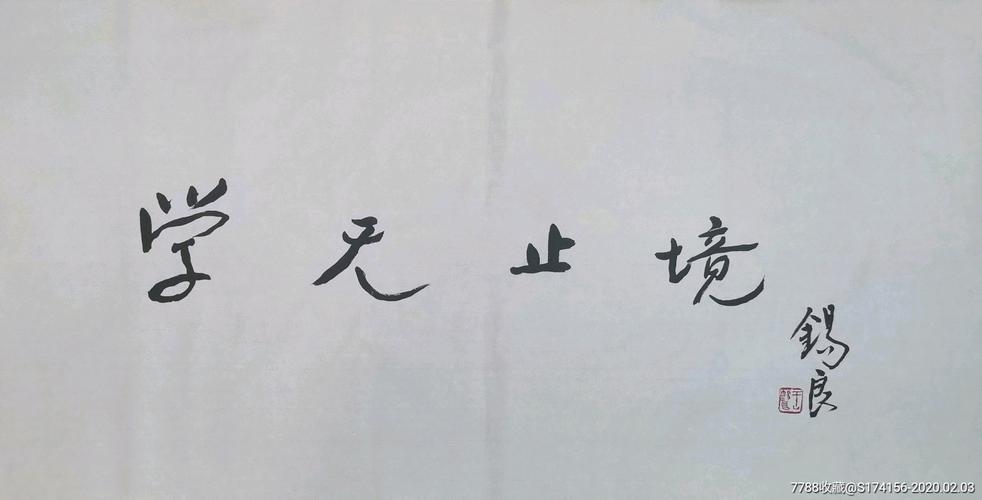 学无止境
锡良
7788收藏@S174156-2020.02.03